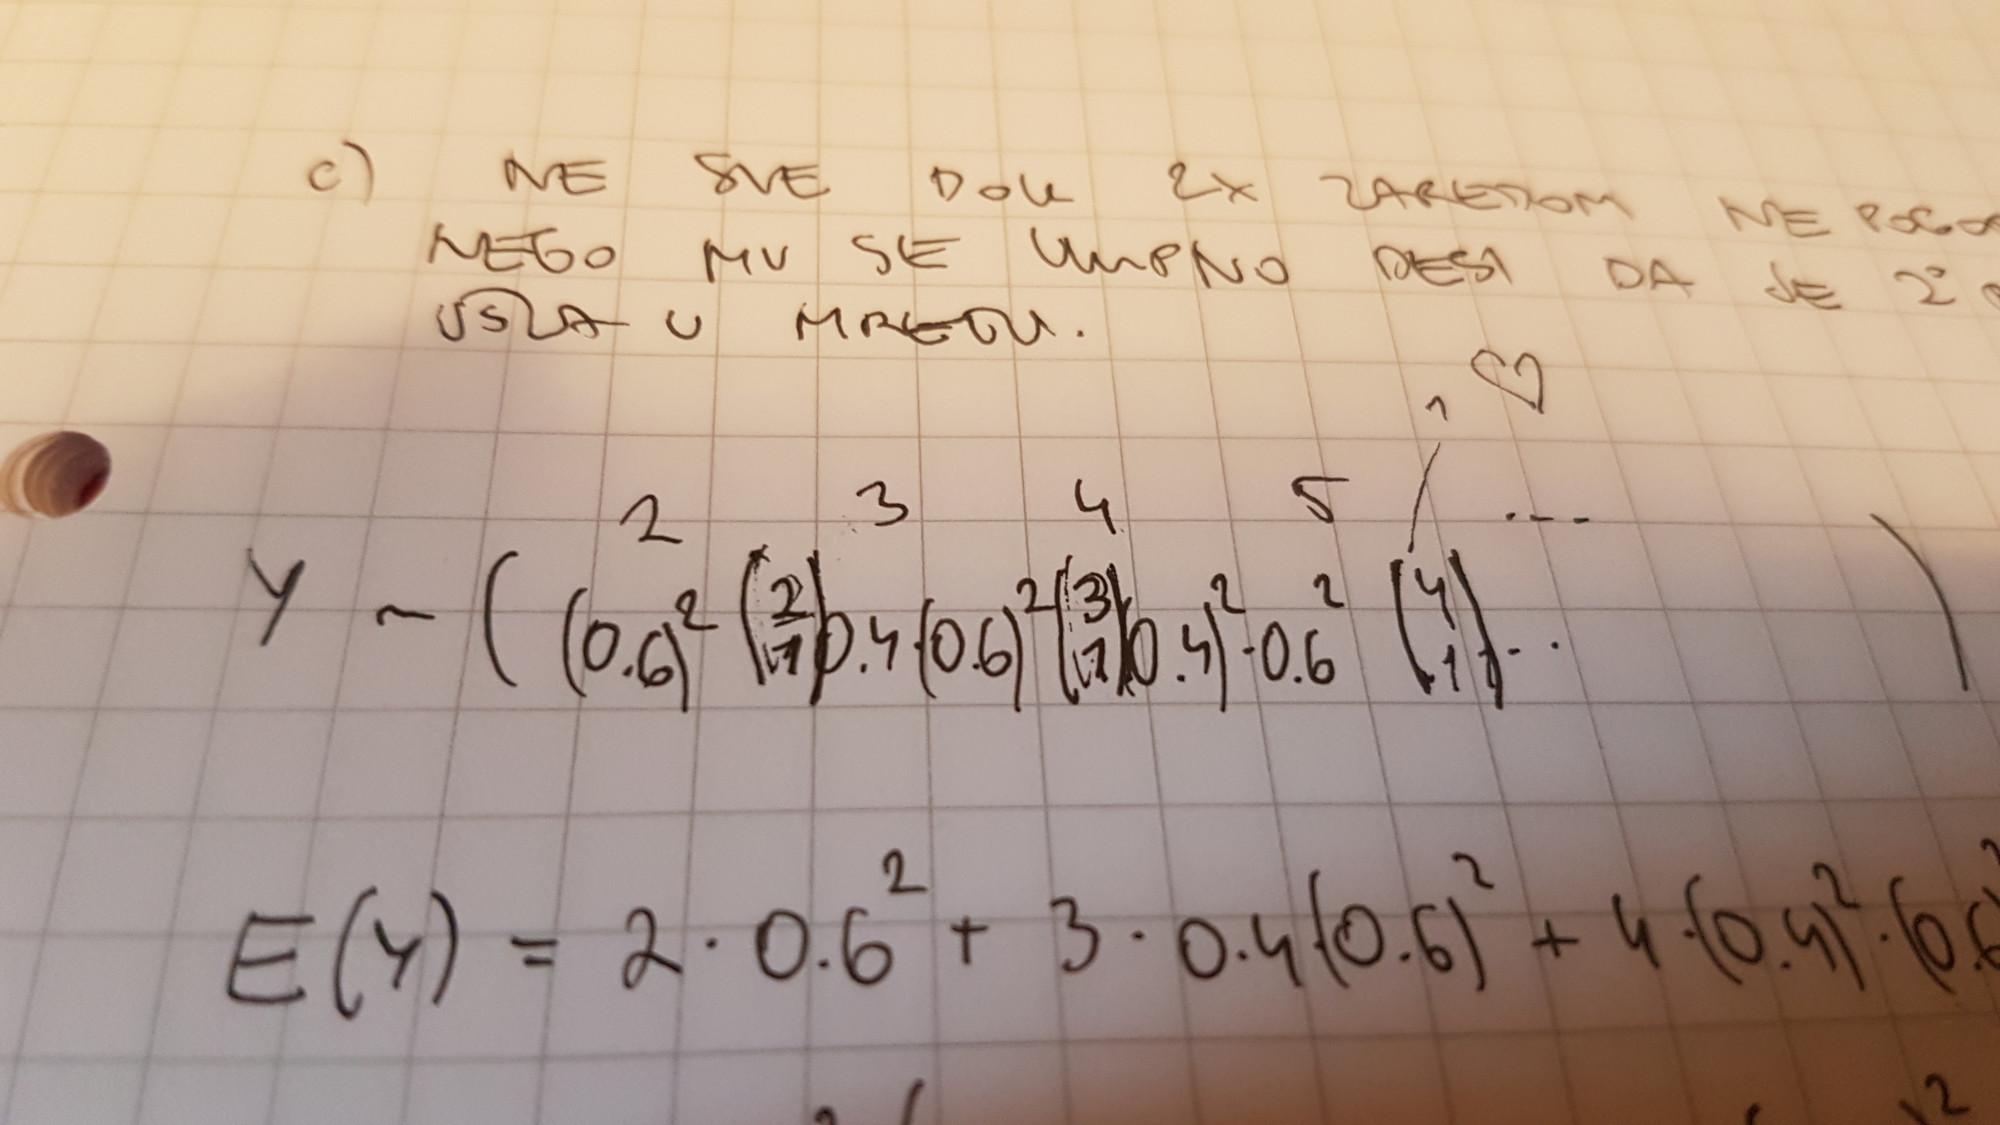 c) NE SVE DOK 2X ZAREDOM NE POGO
NEGO MU SE UKUPNO DESI DA JE 2
UŠLA U MREŽU.
1 ♡
2 3 4 5 ...
Y ~ ( (0.6)² (2 1) 0.4·(0.6)² (3 1) (0.4)²·0.6² (4 1) ... )
E(Y) = 2·0.6² + 3·0.4(0.6)² + 4·(0.4)²·(0.6)²